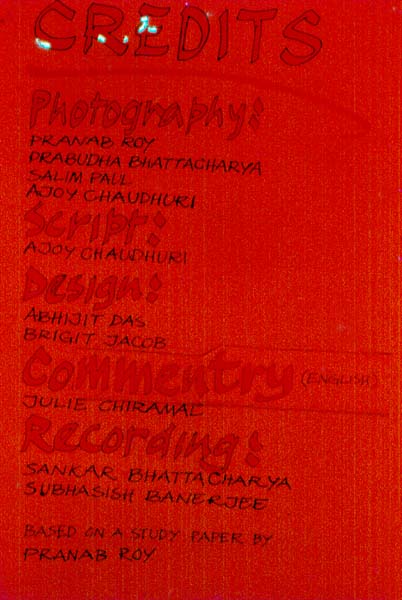 CREDITS
Photography:
PRANAB ROY
PRABUDHA BHATTACHARYA
SALIM PAUL
AJOY CHAUDHURI
Script:
AJOY CHAUDHURI
Design:
ABHIJIT DAS
BRIGIT JACOB
Commentry (ENGLISH)
JULIE CHIRAMAL
Recording:
SANKAR BHATTACHARYA
SUBHASISH BANERJEE
BASED ON A STUDY PAPER BY
PRANAB ROY